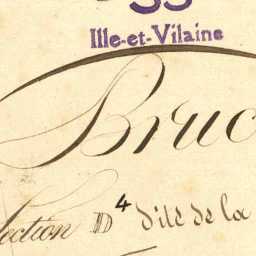 35
Ille-et-Vilaine
Bruc
Section D 4 dite de la